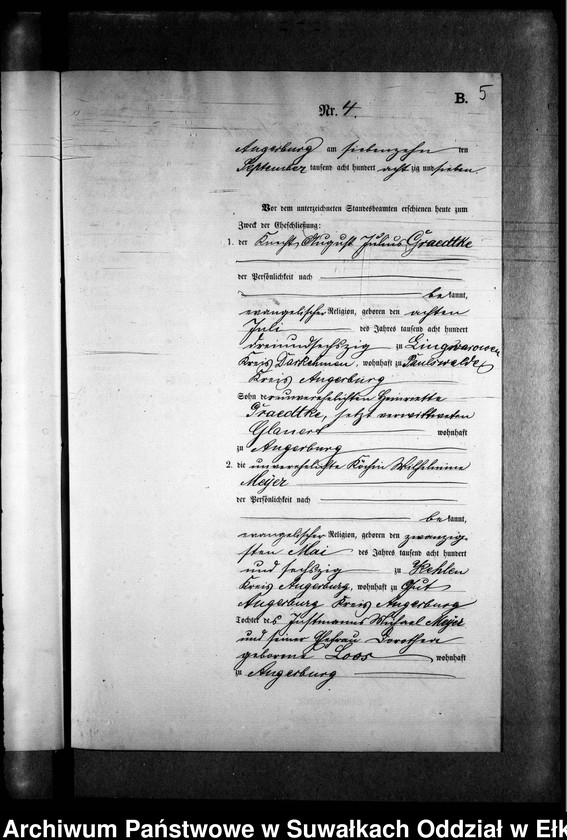 B. 5
Nr. 4.
Angerburg am siebenzehn ten
September tausend acht hundert acht zig und sieben.
Vor dem unterzeichneten Standesbeamten erschienen heute zum
Zweck der Eheschließung:
1. der Knecht August Julius Graedtke
der Persönlichkeit nach
be kannt,
evangelischer Religion, geboren den achten
Juli des Jahres tausend acht hundert
dreiundsechszig zu Lingwarowen
Kreis Darkehmen, wohnhaft zu Paulswalde
Kreis Angerburg
Sohn der unverehelichten Henriette
Graedtke, jetzt verwittweten
Glanert wohnhaft
zu Angerburg
2. die unverehelichte Köchin Wilhelmine
Meyer
der Persönlichkeit nach
be kannt,
evangelischer Religion, geboren den zwanzig-
sten Mai des Jahres tausend acht hundert
und sechszig zu Kehlen
Kreis Angerburg, wohnhaft zu Gut
Angerburg Kreis Angerburg
Tochter des Instmanns Michael Meyer
und seiner Ehefrau Dorothea
geborene Loos wohnhaft
zu Angerburg
Archiwum Państwowe w Suwałkach Oddział w Ełk